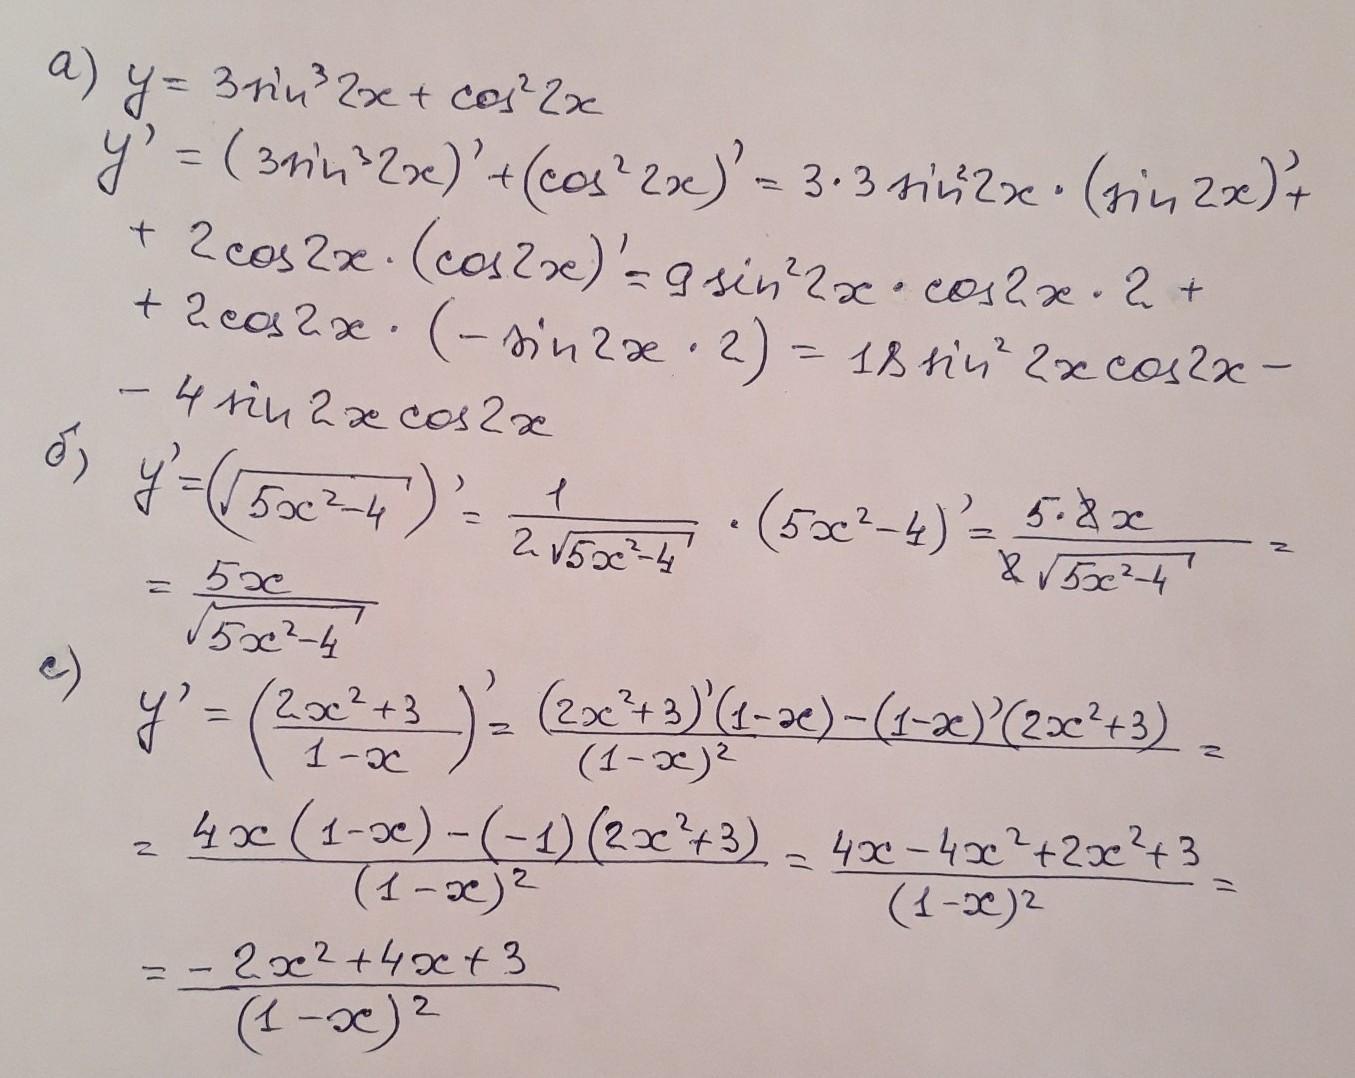 а) y = 3 sin³ 2x + cos² 2x
y' = (3 sin³ 2x)' + (cos² 2x)' = 3·3 sin² 2x · (sin 2x)' +
+ 2 cos 2x · (cos 2x)' = 9 sin² 2x · cos 2x · 2 +
+ 2 cos 2x · (− sin 2x · 2) = 18 sin² 2x cos 2x −
− 4 sin 2x cos 2x
б) y' = (√(5x²−4))' = 1/(2√(5x²−4)) · (5x²−4)' = (5·2x)/(2√(5x²−4)) =
= 5x/√(5x²−4)
с) y' = ((2x²+3)/(1−x))' = ((2x²+3)'(1−x)−(1−x)'(2x²+3))/(1−x)² =
= (4x(1−x)−(−1)(2x²+3))/(1−x)² = (4x−4x²+2x²+3)/(1−x)² =
= (−2x²+4x+3)/(1−x)²